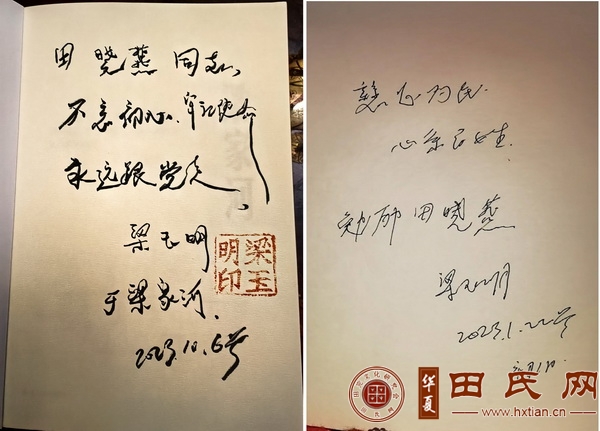 田晓燕同志,
不忘初心、牢记使命
永远跟党走。
梁玉明
于梁家河.
2023.10.6号
梁玉
明印
为民.
心系百姓.
勉励田晓燕
梁玉明
2023.1.22号
华夏
田氏网
www.hxtian.cn